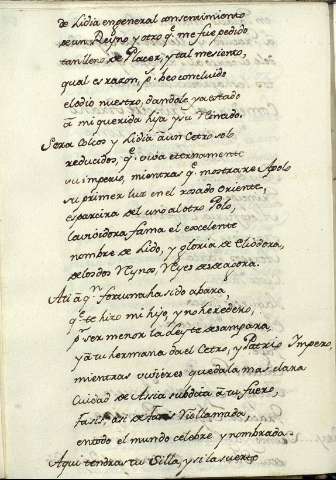 de Lidia en general consentimiento
de un Reyno y otro q.e me fue pedido
tan lleno de Placer, y tal me siento,
qual es razon, p.r heo concluido
el odio nuestro, dandole ya estado
â mi querida hija y su Reinado.
Sera Colcos y Lidia â un Cetro solo
reducidos, q.e viva eternamente
su imperio, mientras q.e mostrare Apolo
su primer luz en el rosado oriente,
esparcira del uno al otro Polo,
la veloidora fama el excelente
nombre de Lido, y gloria de Cliodora,
de los dos Reynos, Reyes desde agora.
A ti â q.n fortuna ha sido abara,
q.e te hizo mi hijo, y no heredero,
p.r ser menor la Ley te desampara,
y â tu hermana da el Cetro, y Patrio Imperio,
mientras vivieres quedala mas clara
Ciudad de Assia subdita â tu fuero,
Fasis, de Fasis Rio llamada,
en todo el mundo celebre y nombrada.
Aqui tendras tu Silla, y si la suerte